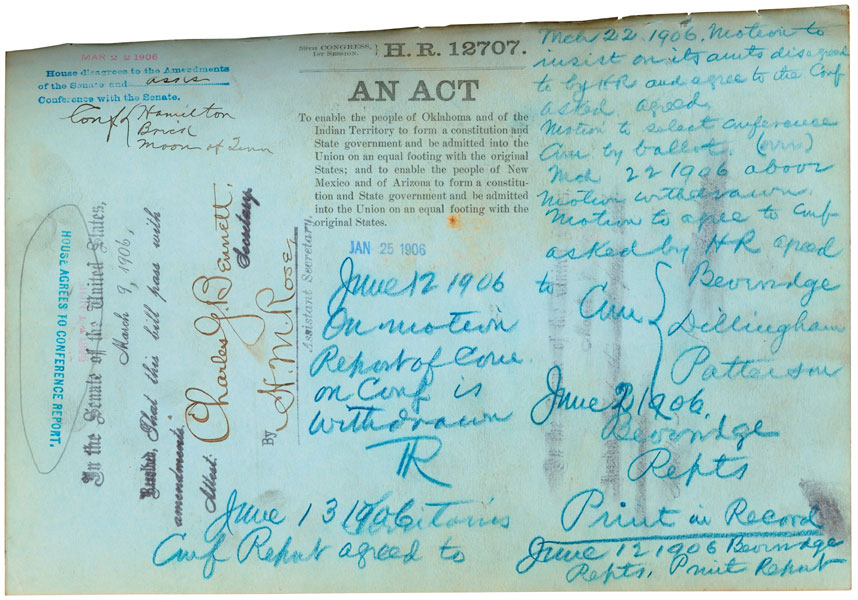 MAR 22 1906
House disagrees to the Amendments
of the Senate and asks
Conference with the Senate.
Conf { Hamilton
Brick
Moon of Tenn
59TH CONGRESS,
1ST SESSION.
H. R. 12707.
AN ACT
To enable the people of Oklahoma and of the
Indian Territory to form a constitution and
State government and be admitted into the
Union on an equal footing with the original
States; and to enable the people of New
Mexico and of Arizona to form a constitu-
tion and State government and be admitted
into the Union on an equal footing with the
original States.
JAN 25 1906
June 12 1906
On motion
Report of Com
on Conf is
withdrawn
TR
Mch 22 1906. Motion to
insist on its amts disagreed
to by HR and agree to the Conf
asked agreed.
Motion to select conference
Com by ballot.
Mch 22 1906 above
Motion withdrawn
Motion to agree to conf
asked by HR agreed
to Com { Beveridge
Dillingham
Patterson
June 2 1906.
Beveridge
Repts
Print in Record
June 12 1906 Beveridge
Repts. Print Report
June 13 1906
Conf Report agreed to
HOUSE AGREES TO CONFERENCE REPORT.
In the Senate of the United States,
March 9, 1906,
Resolved, That this bill pass with
amendments.
Attest:
Charles G. Bennett,
Secretary.
By H. M. Rose,
Assistant Secretary.